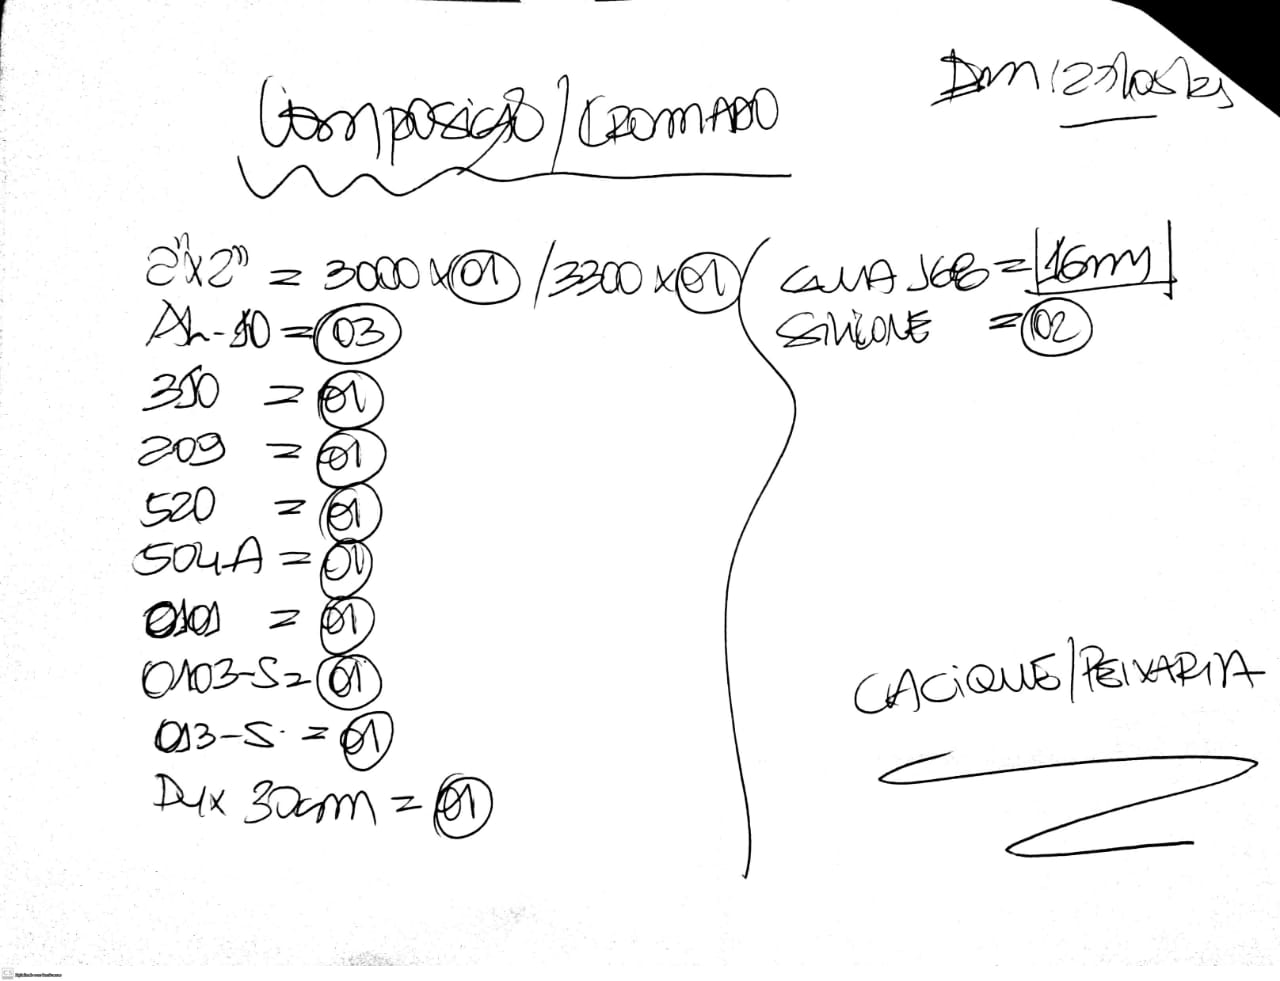 Composição/CROMADO
2"x2" = 3000 x 01 / 3300 x 01
AL-10 = 03
350 = 01
209 = 01
520 = 01
504A = 01
0101 = 01
0103-S = 01
013-S = 01
D4x 30cm = 01
= 16mm
SILICONE = 02
CACIQUE/PEIXARIA